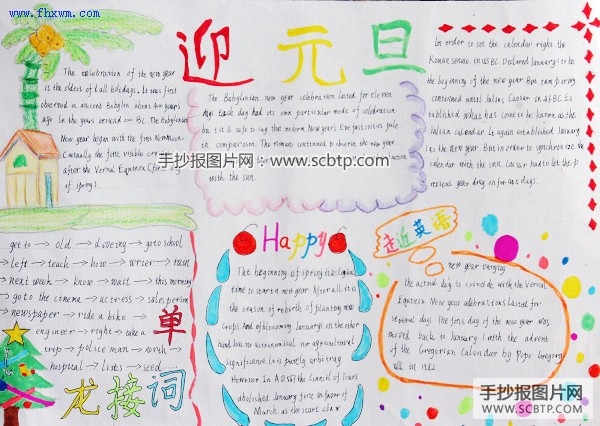 www.fhxwm.com
迎元旦
The celebration of the new year
is the oldest of all holidays. It was first
observed in ancient Babylon about 4000 years
ago. In the years around 2000 BC. The Babylonian
New year began with the first New Moon
after the Vernal Equinox (first day
of spring).
The Babylonian new year celebration lasted for eleven
days. Each day had its own particular mode of celebration
but it is safe to say that modern New Year's Eve festivities pale
in comparison. The romans continued to observe the new year
with the sun.
手抄报图片网:www.scbtp.com
In order to set the calendar right, the
Roman senate in 153 BC Declared January 1 to be
the beginning of the new year. But
continued until Julius Caesar in 46 BC. Es
tablished what has come to be known as the
Julian Calendar. It again established January 1
as the New year. But in order to synchronize the
calendar with the sun. Caesar had to let the p
revious year drag on for 445 days.
get to → old → → go to school
→ left → teach → how → → train
next week → know → wait → this morning
→ go to the cinema → actress → sales person
→ newspaper → ride a bike →
engineer → right → take a
trip → police man → →
hospital → → seed
单
龙接词
Happy
The beginning of spring is a logical
time to start a new year. After all it is
the season of rebirth of planting new
crops. And of blooming. January on the other
hand has no astronomical nor agricultural
significance. It is purely arbitrary.
However. In A.D 567 the Council of Tours
abolished January first
March as the start
走近英语
New year
The actual day to coincide with the Vernal
Equinox. New year celebrations lasted for
several days. The first day of the new year was
moved back to January 1 with the advent
of the Gregorian calendar by Pope Gregory
in 1582
手抄报图片网
WWW.SCBTP.COM